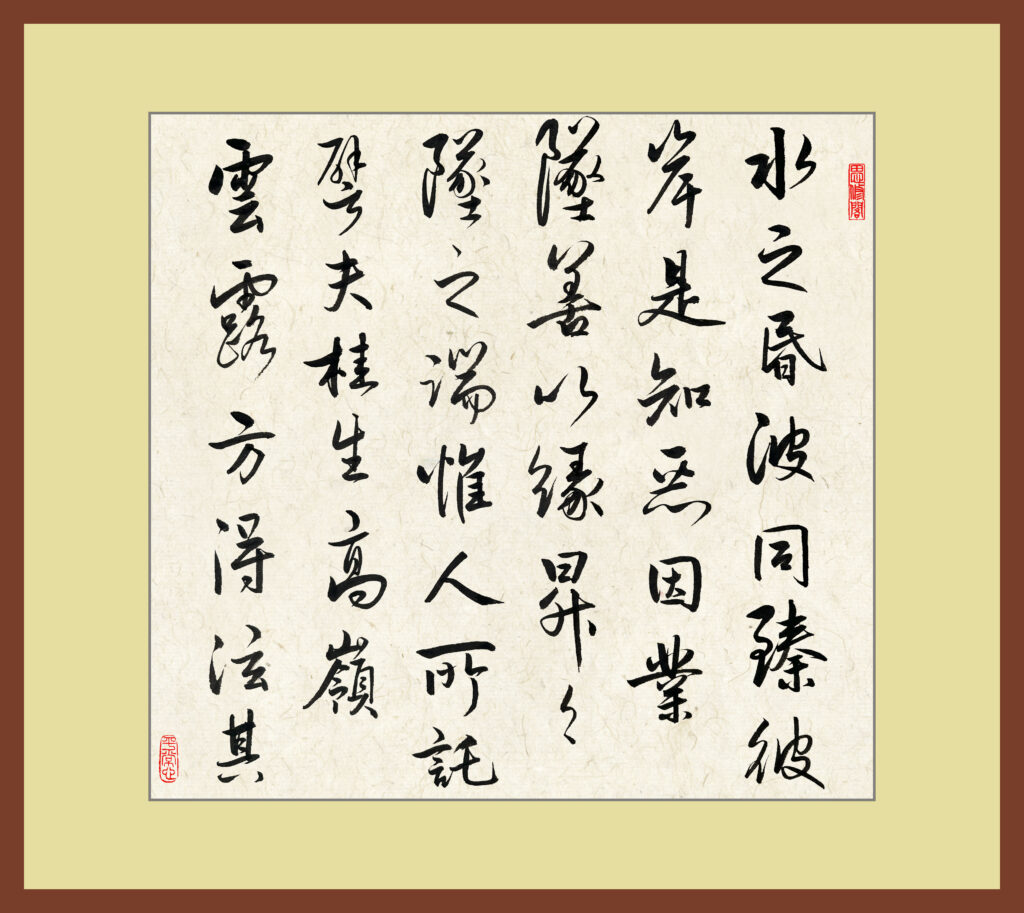 思修閣
水之昬波同臻彼
岸是知惡因業
墜善以緣昇々
墜之端惟人所託
譬夫桂生高嶺
雲露方得泫其
平常心